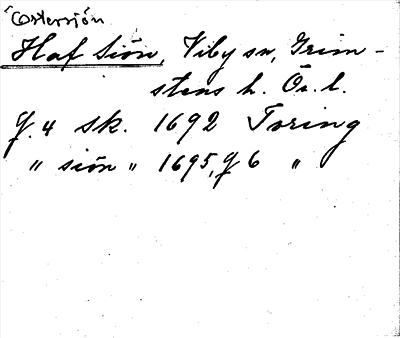 Östersjön
Haf Siön, Viby sn, Grim-
stens h. Ör. l.
G. 4 sk. 1692 Toring
" siön " 1695, G 6 "